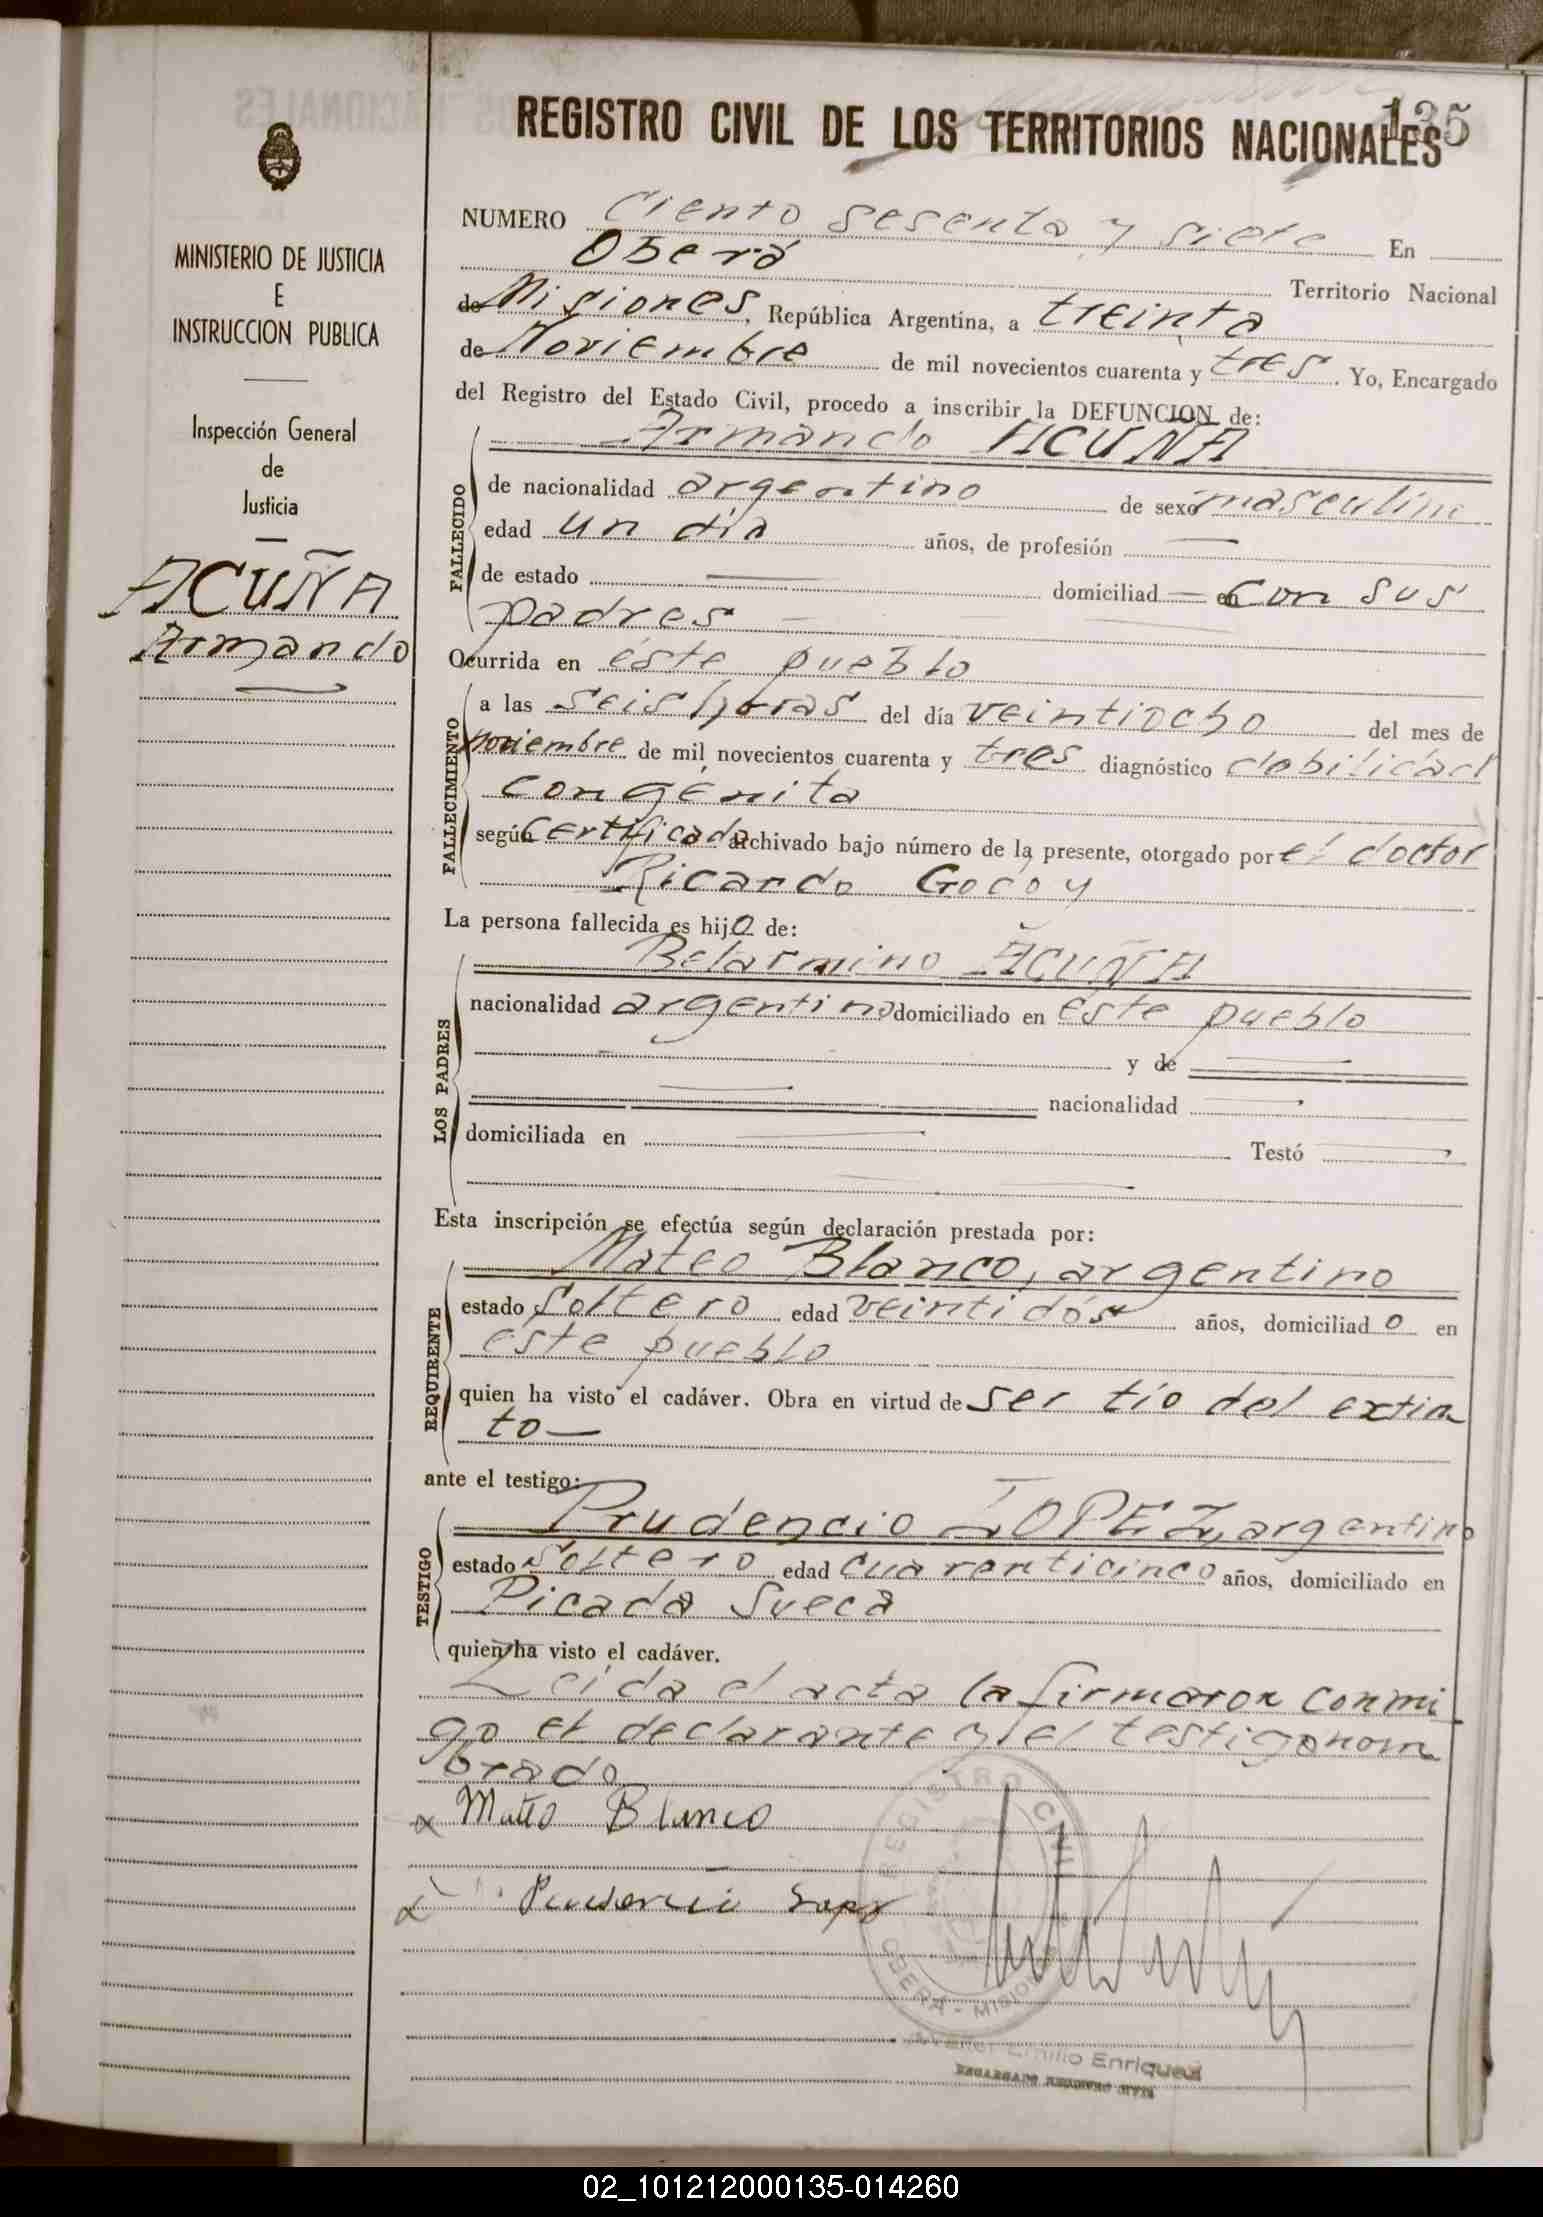 135
REGISTRO CIVIL DE LOS TERRITORIOS NACIONALES
MINISTERIO DE JUSTICIA
E
INSTRUCCION PUBLICA
Inspección General
de
Justicia
ACUÑA
Armando
NUMERO Ciento sesenta y siete En
Oberá Territorio Nacional
de Misiones, República Argentina, a treinta
de Noviembre de mil novecientos cuarenta y tres. Yo, Encargado
del Registro del Estado Civil, procedo a inscribir la DEFUNCION de:
Armando ACUÑA
FALLECIDO
de nacionalidad argentino de sexo masculino
edad un día años, de profesión —
de estado — domiciliad — en con sus
padres —
Ocurrida en éste pueblo
FALLECIMIENTO
a las seis horas del día veintiocho del mes de
Noviembre de mil novecientos cuarenta y tres diagnóstico debilidad
congénita
según certificado archivado bajo número de la presente, otorgado por el doctor
Ricardo Godoy
La persona fallecida es hijo de:
LOS PADRES
Belarmino ACUÑA
nacionalidad argentino domiciliado en éste pueblo
y de —
— nacionalidad —
domiciliada en — Testó —
Esta inscripción se efectúa según declaración prestada por:
REQUIRENTE
Mateo Blanco, argentino
estado soltero edad veintidós años, domiciliado en
éste pueblo
quien ha visto el cadáver. Obra en virtud de ser tío del extin
to —
ante el testigo:
TESTIGO
Prudencio LOPEZ, argentino
estado soltero edad cuarenticinco años, domiciliado en
Picada Sueca
quien ha visto el cadáver.
Leída el acta la firmaron conmi
go el declarante y el testigo nom
brado
x Mateo Blanco
Prudencio Lopez
REGISTRO CIVIL
OBERÁ - MISIONES
Emilio Enriquez
ENCARGADO REGISTRO CIVIL
02_101212000135-014260